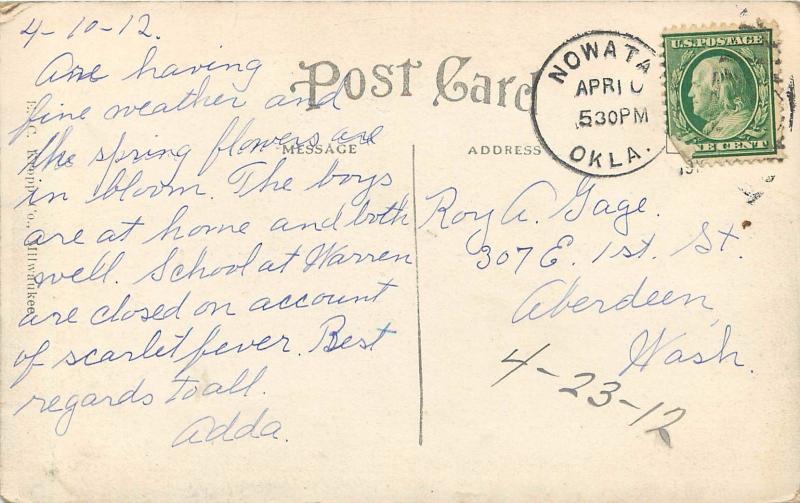 4-10-12.
Are having
fine weather and
the spring flowers are
in bloom. The boys
are at home and both
well. School at Warren
are closed on account
of scarlet fever. Best
regards to all.
Adda.
Post Card
MESSAGE
ADDRESS
NOWATA
APR 10
530PM
OKLA.
U.S. POSTAGE
CENT
Roy A. Gage.
307 E. 1st. St.
Aberdeen,
Wash.
4-23-12
E. C. Kropp Co., Milwaukee